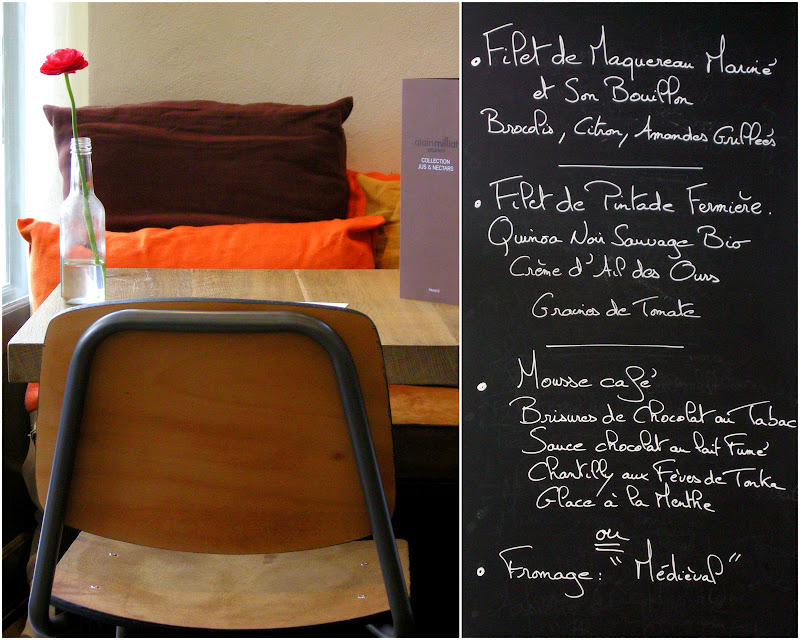 alain milliat
COLLECTION
JUS & NECTARS
• Filet de Maquereau Mariné
et Son Bouillon
Brocolis, Citron, Amandes Grillées
• Filet de Pintade Fermière.
Quinoa Noir Sauvage Bio
Crème d'Ail des Ours
Graines de Tomate
• Mousse café
Brisures de Chocolat au Tabac
Sauce chocolat au lait Fumé
Chantilly aux Fèves de Tonka
Glace à la Menthe
ou
• Fromage : "Médièval"